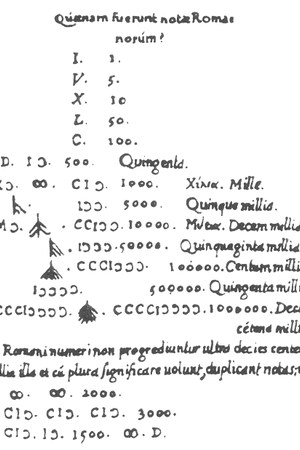 Quænam fuerunt notæ Roma
norum?
I. 1.
V. 5.
X. 10
L. 50.
C. 100.
D. IↃ. 500. Quingenta.
∞. CIↃ. 1000. Χίλια. Mille.
IↃↃ. 5000. Quinque millia.
CCIↃↃ. 10000. Decem millia
IↃↃↃ. 50000. Quinquaginta millia
CCCIↃↃↃ. 100000. Centum milli
IↃↃↃↃ. 500000. Quingenta milli
CCCCIↃↃↃↃ. 1000000. Deci
cētena milli
Romani numeri non progrediuntur ultra decies centen
llia illa et cū plura significare volunt, duplicant notas;
∞. ∞. 2000.
CIↃ. CIↃ. CIↃ. 3000.
CIↃ. IↃ. 1500. ∞. D.